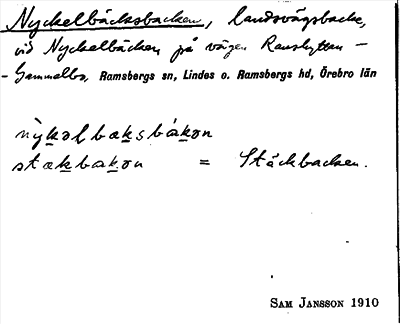 Nyckelbäcksbacken, landsvägsbacke,
vid Nyckelbäcken på vägen Ranshyttan –
- Gammelbo, Ramsbergs sn, Lindes o. Ramsbergs hd, Örebro län
nỳkəlbɑksbákən
stɑkbɑkən = Stäckbacken.
SAM JANSSON 1910